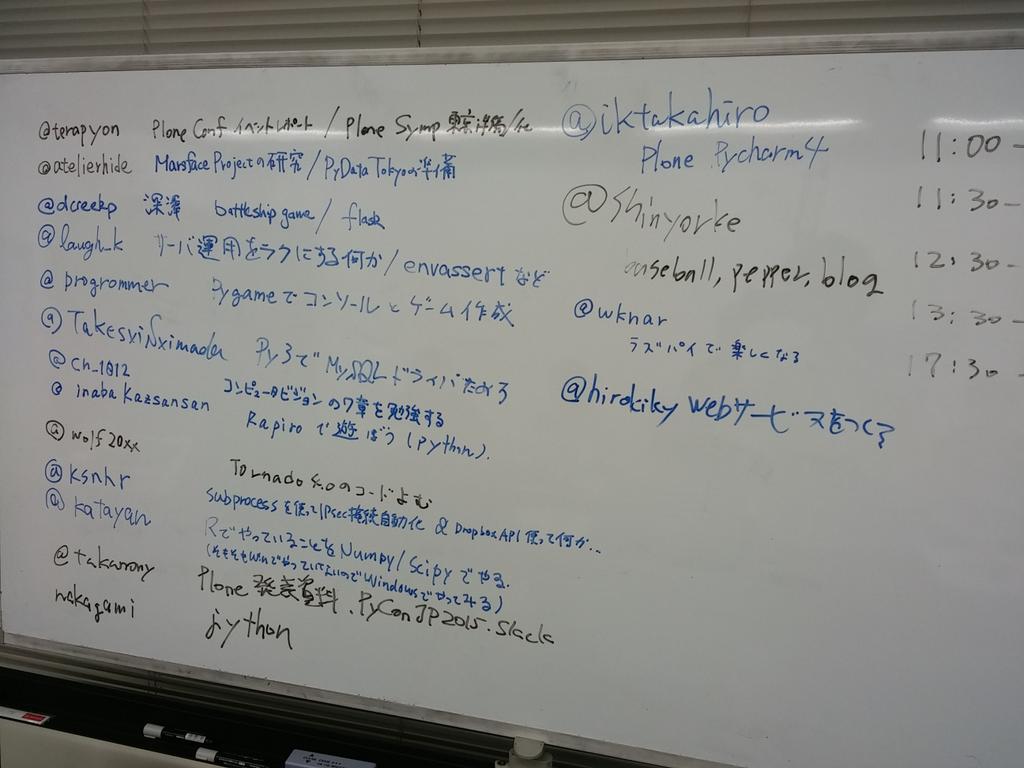 @terapyon Plone Conf イベントレポート / Plone Symp 東京
@atelierhide Marsface Projectの研究 / PyData Tokyoの準備
@dcreekp 深澤 battleship game / flask
@laugh_k サーバ運用をラクにする何か / envassert など
@programmer Pygameでコンソールとゲーム作成
@TakesxiSximada Py3でMySQLドライバためす
@ch_1012 コンピュータビジョンの7章を勉強する
@inabakazsansan Rapiroで遊ぼう (python).
@wolf20xx Tornado 4.0のコードよむ
@ksnhr subprocessを使ってIPsec接続自動化 & Dropbox API使って何か..
@katayan RでやっていることをNumpy/Scipyでやる.
(そもそもWinでやっていないのでWindowsでやってみる)
@takanory Plone発表資料. PyCon JP 2015. Slack
nakagami jython
@iktakahiro
Plone Pycharm4
@shinyorke
baseball, pepper, blog
@wknar
ラズパイで楽しくなる
@hirokiky Webサービスをつくる
11:00-
11:30-
12:30-
13:30-
17:30-